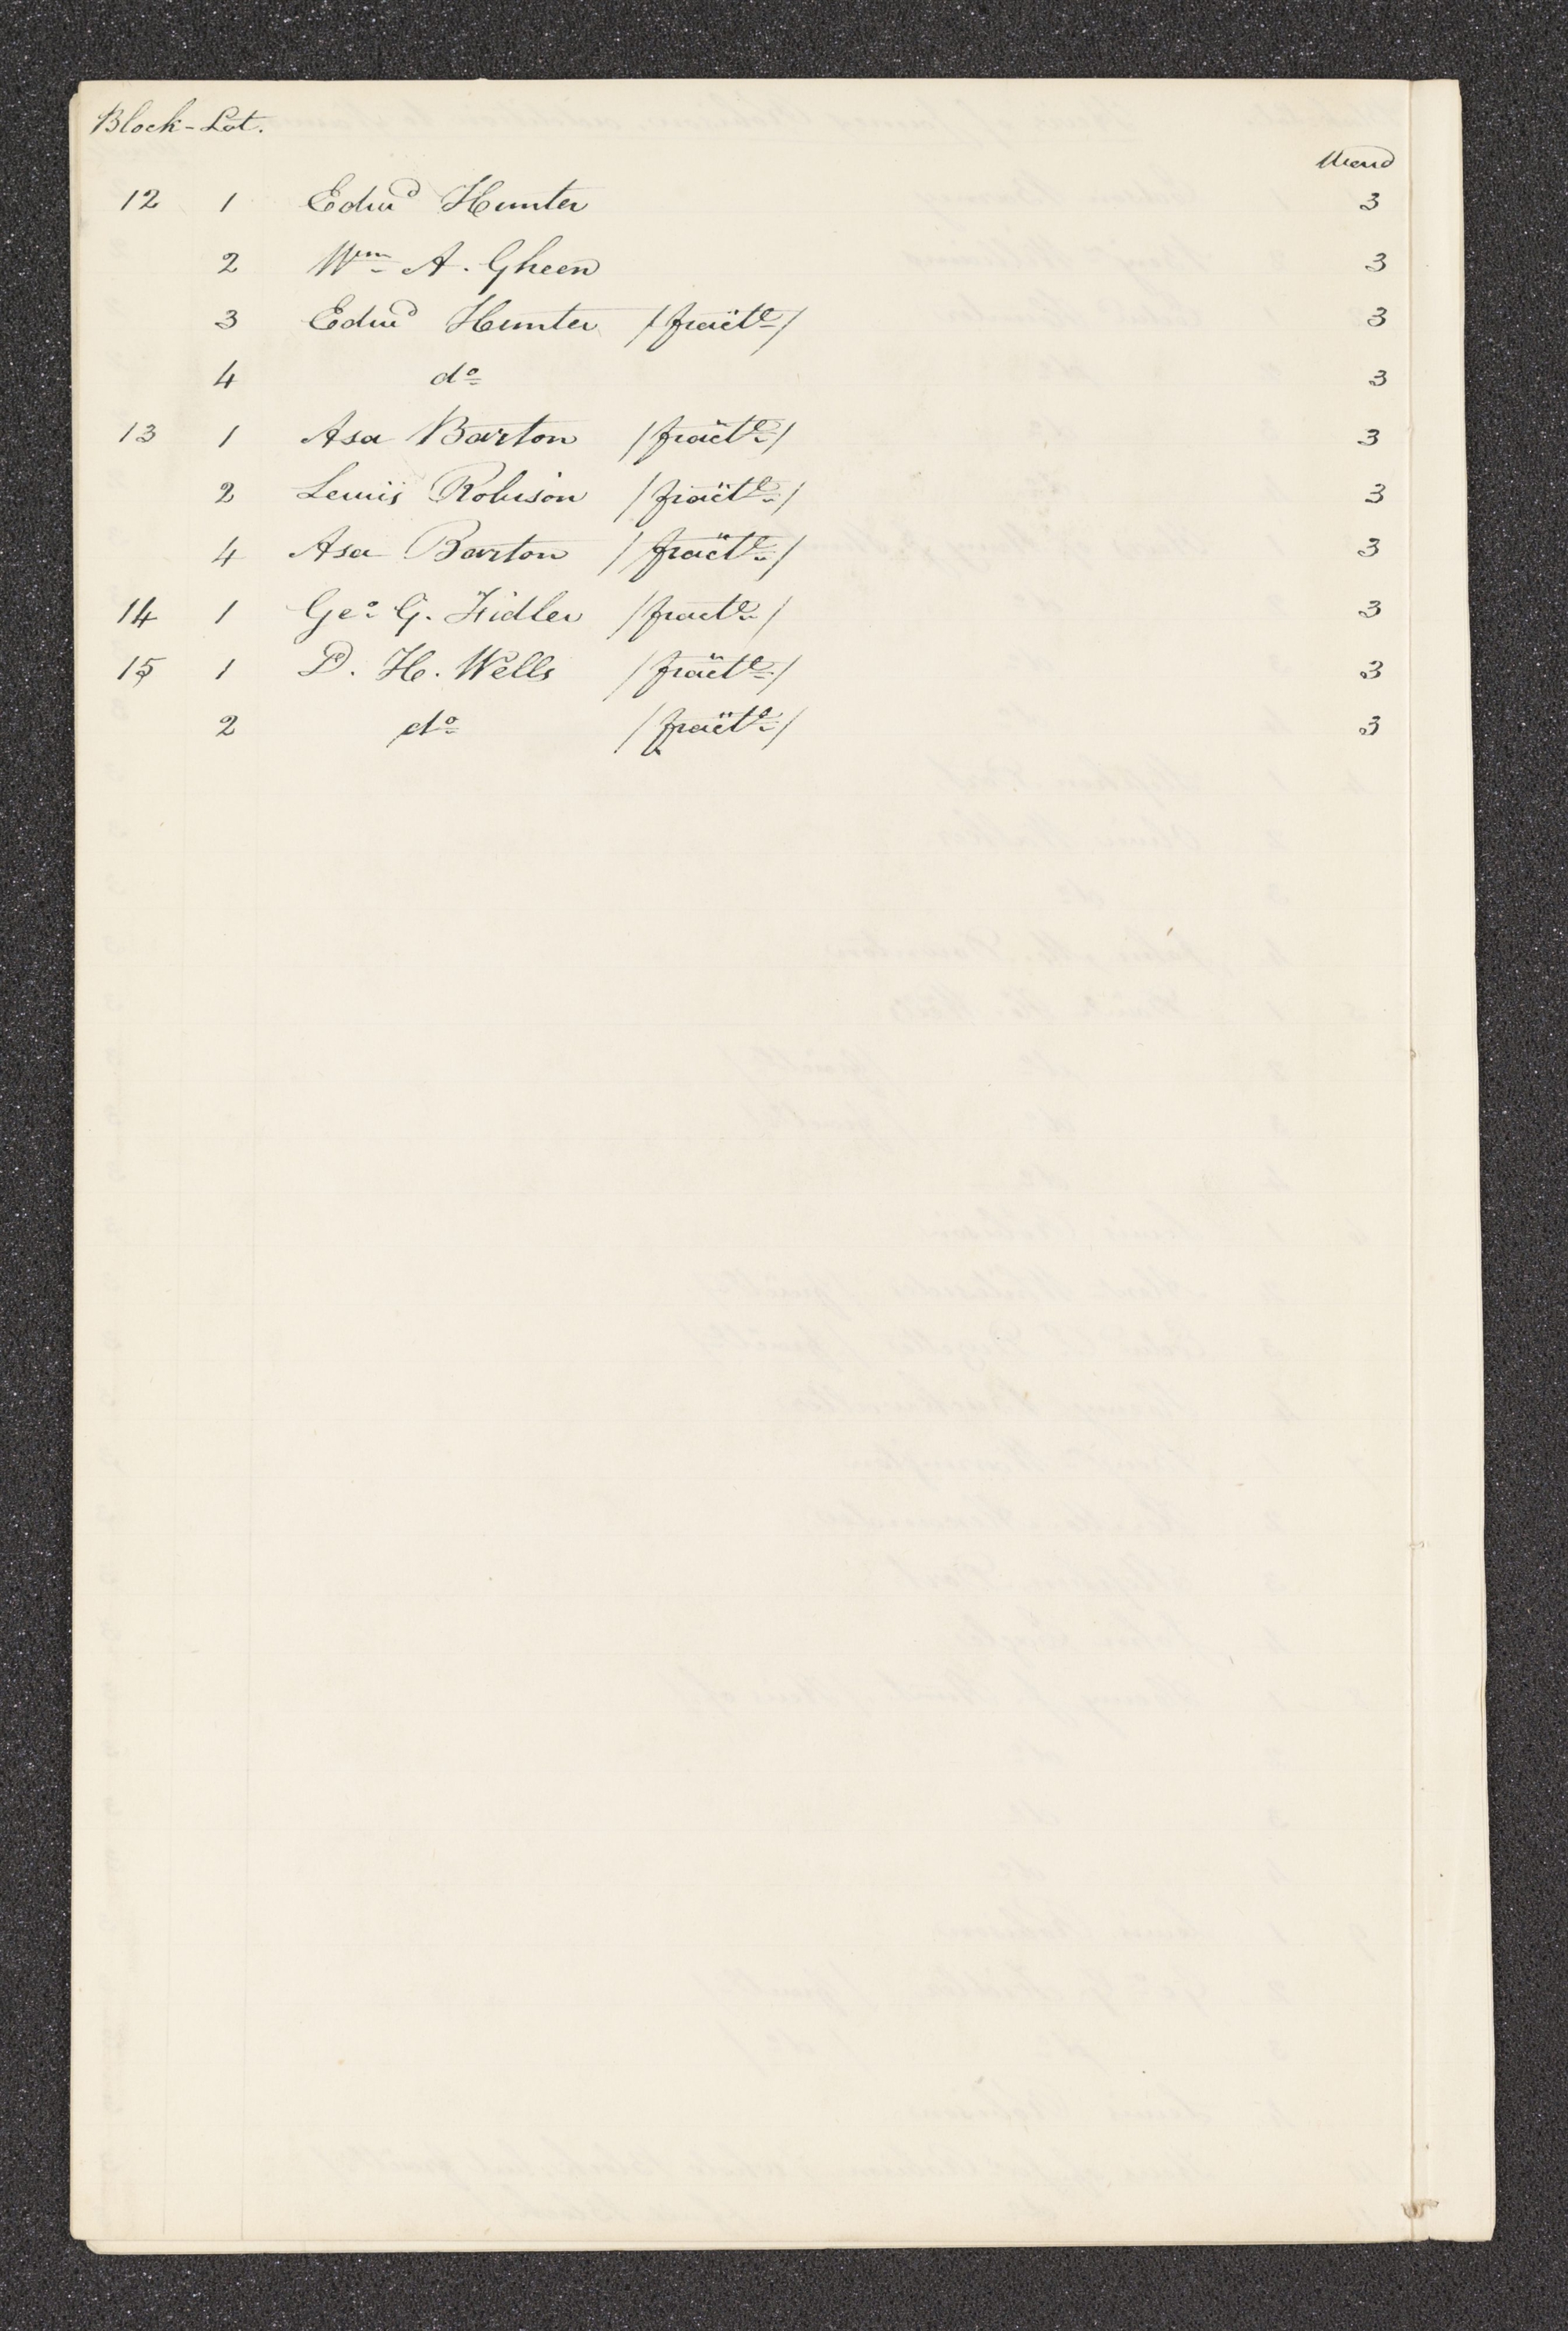 Block - Lot.
Ward
12 1 Edwd Hunter 3
2 Wm A. Gheen 3
3 Edwd Hunter /fractl/ 3
4 do 3
13 1 Asa Barton /fractl/ 3
2 Lewis Robison /fractl/ 3
4 Asa Barton /fractl/ 3
14 1 Geo G. Fidler /fractl/ 3
15 1 D. H. Wells /fractl/ 3
2 do /fractl/ 3